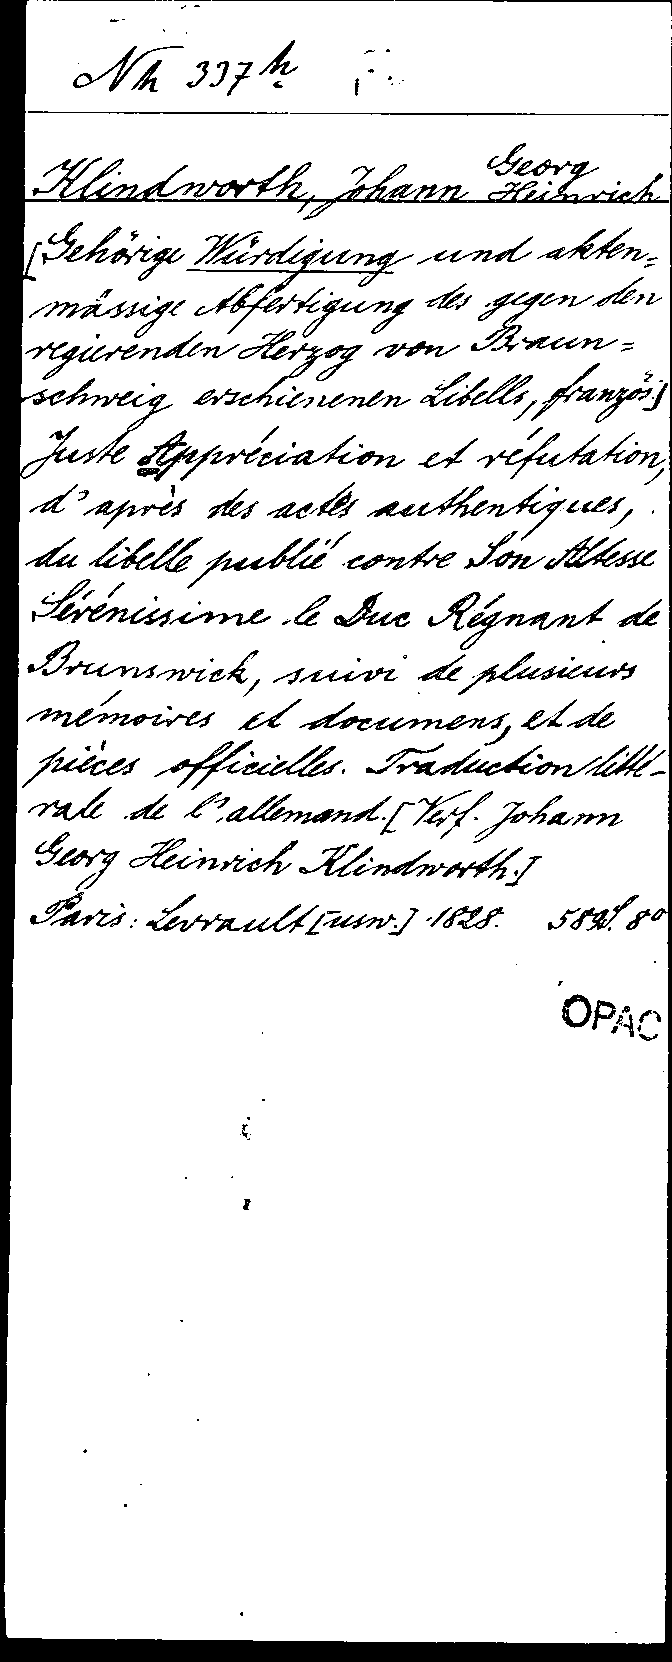 Nh 337 h
Klindworth, Johann Georg Heinrich
[Gehörige Würdigung und akten=
mässige Abfertigung des gegen den
regierenden Herzog von Braun=
schweig erschienenen Libells, französ.]
Juste Appréciation et réfutation,
d'après des actes authentiques,
du libelle publié contre Son Altesse
Sérénissime le Duc Régnant de
Brunswick, suivi de plusieurs
mémoires et documens, et de
pièces officielles. Traduction litté-
rale de l'allemand. [Verf. Johann
Georg Heinrich Klindworth.]
Paris: Levrault [usw.] 1828. 589 S. 8°
OPAC